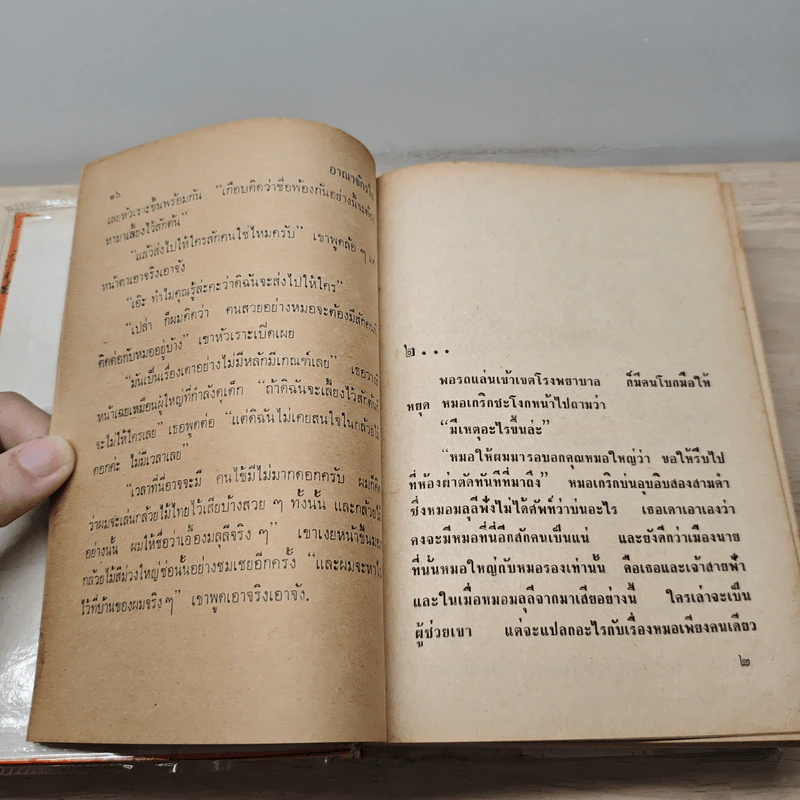 ๑๖
อาณาจักรใ
เลยหัวเราะขึ้นพร้อมกัน "เกือบคิดว่าชื่อพ้องกันอย่างนี้จะต้อง
หามาเลี้ยงไว้สักต้น"
"แล้วส่งไปให้ใครสักคนใช่ไหมครับ" เขาพูดล้อ ๆ แ
หน้าตาเอาจริงเอาจัง
"เอ๊ะ ทำไมคุณรู้ล่ะคะว่าดิฉันจะส่งไปให้ใคร"
"เปล่า ก็ผมคิดว่า คนสวยอย่างหมอจะต้องมีสักคนที่
ติดต่อกับหมออยู่บ้าง" เขาหัวเราะเปิดเผย
"มันเป็นเรื่องเดาอย่างไม่มีหลักมีเกณฑ์เลย" เธอวาง
หน้าเฉยเหมือนผู้ใหญ่ที่กำลังดุเด็ก "ถ้าดิฉันจะเลี้ยงไว้สักต้น
จะไม่ให้ใครเลย" เธอพูดต่อ "แต่ดิฉันไม่เคยสนใจในกล้วยไ
ดอกค่ะ ไม่มีเวลาเลย"
"เวลาที่นี่อาจจะมี คนไข้มีไม่มากดอกครับ ผมก็คิด
ว่าผมจะเล่นกล้วยไม้ไทยไว้เสียบ้างสวย ๆ ทั้งนั้น และกล้วยไ
อย่างนั้น ผมให้ชื่อว่าเอื้องมลุลีจริง ๆ" เขาเงยหน้าขึ้นมอ
กล้วยไม้สีม่วงใหญ่ช่อนั้นอย่างชมเชยอีกครั้ง "และผมจะหาไ
ไว้ที่บ้านของผมจริง ๆ" เขาพูดเอาจริงเอาจัง.
๒ . . .
พอรถแล่นเข้าเขตโรงพยาบาล ก็มีคนโบกมือให้
หยุด หมอเกริกชะโงกหน้าไปถามว่า
"มีเหตุอะไรขึ้นล่ะ"
"หมอให้ผมมารอบอกคุณหมอใหญ่ว่า ขอให้รีบไป
ที่ห้องผ่าตัดทันทีที่มาถึง" หมอเกริกบ่นอุบอิบสองสามคำ
ซึ่งหมอมลุลีฟังไม่ได้ศัพท์ว่าบ่นอะไร เธอเดาเอาเองว่า
คงจะมีหมอที่นี่อีกสักคนเป็นแน่ และยังดีกว่าเมืองนาย
ที่นั้นหมอใหญ่กับหมอรองเท่านั้น คือเธอและเจ้าสายฟ้า
และในเมื่อหมอมลุลีจากมาเสียอย่างนี้ ใครเล่าจะเป็น
ผู้ช่วยเขา แต่จะแปลกอะไรกับเรื่องหมอเพียงคนเดียว
๒